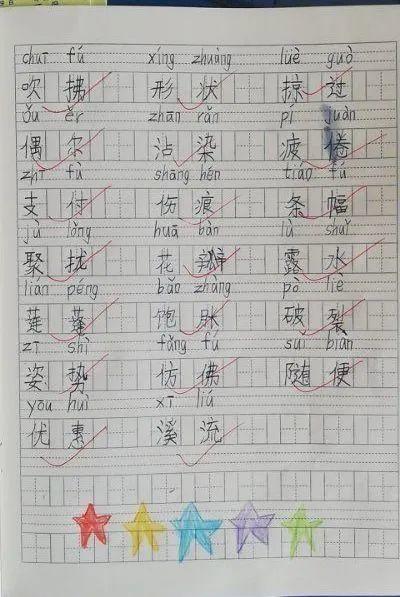 chuī fú xíng zhuàng lüè guò
吹拂 形状 掠过
ǒu ěr zhān rǎn pí juàn
偶尔 沾染 疲倦
zhī fù shāng hén tiáo fú
支付 伤痕 条幅
jù lǒng huā bàn lù shuǐ
聚拢 花瓣 露水
lián péng bǎo zhàng pò liè
莲蓬 饱胀 破裂
zī shì fǎng fú suí biàn
姿势 仿佛 随便
yōu huì xī liú
优惠 溪流